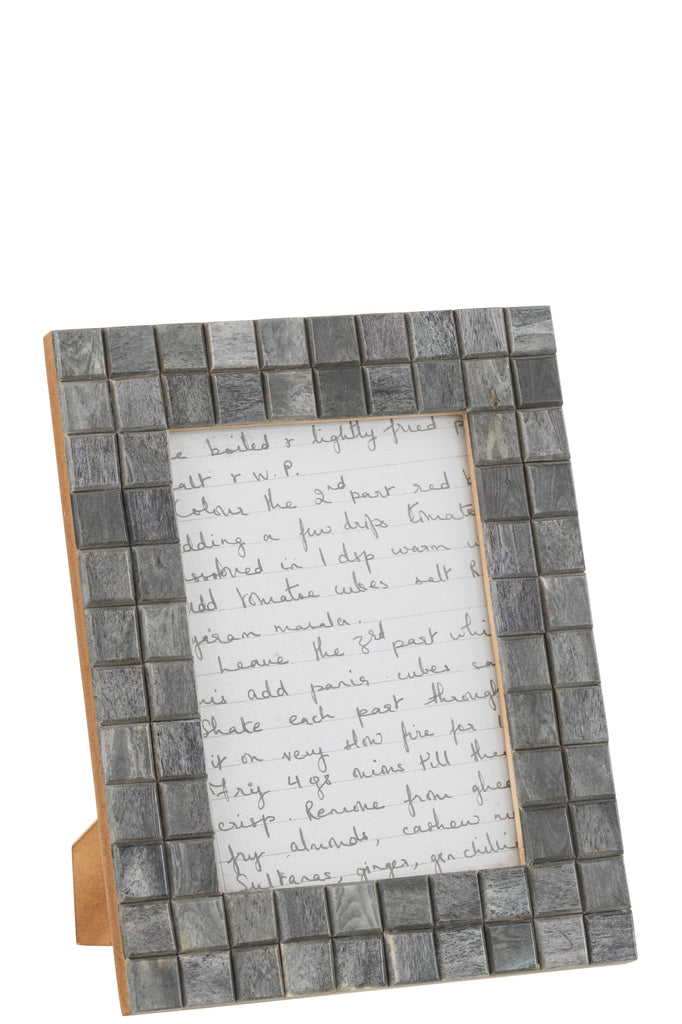 e boiled & lightly fried p
alt & W.P.
Colour the 2nd part red b
dding a few drps tomato
ssolved in 1 dsp warm w
add tomatoe cubes salt R
garam masala.
Leave the 3rd part whi
add panir cubes sa
Shake each part through
it on very slow fire for 1
Fry 4 onions till the
crisp. Remove from ghee
fry almonds, cashew nu
Sultanas, ginger, gen chillies